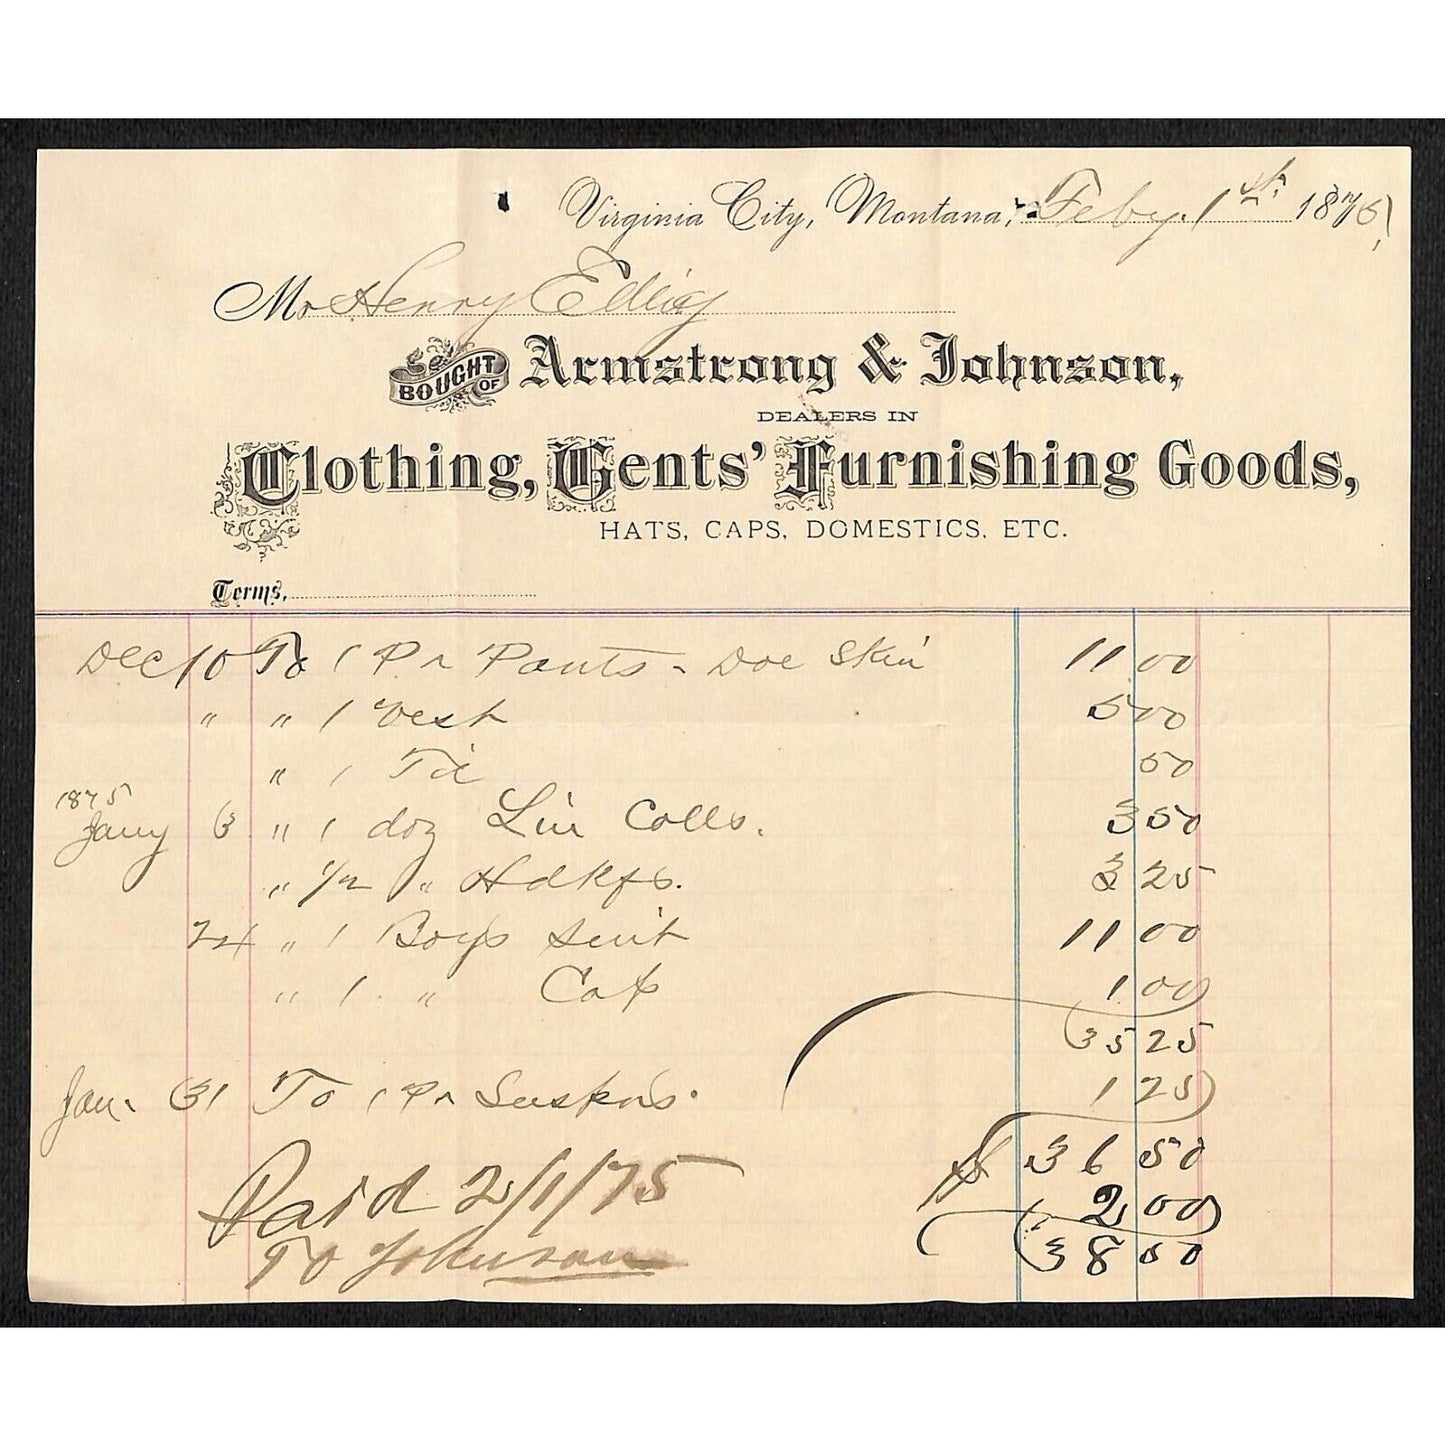 Virginia City, Montana, Feby. 1st. 1875
Mr Henry Elling
BOUGHT OF Armstrong & Johnson,
DEALERS IN
Clothing, Gents' Furnishing Goods,
HATS, CAPS, DOMESTICS, ETC.
Terms,
Dec 10 To 1 Pr Pants - Doe Skin 11 00
" " 1 Vest 5 00
" 1 Tie 50
1875
Jany 6 " 1 doz Lin Colls. 3 50
" 1/2 " Hdkfs. 3 25
24 " 1 Boys Suit 11 00
" 1 " Cap 1 00
35 25
Jan. 31 To 1 Pr Suspns. 1 25
$ 36 50
Paid 2/1/75 2 00
To Johnson 38 50